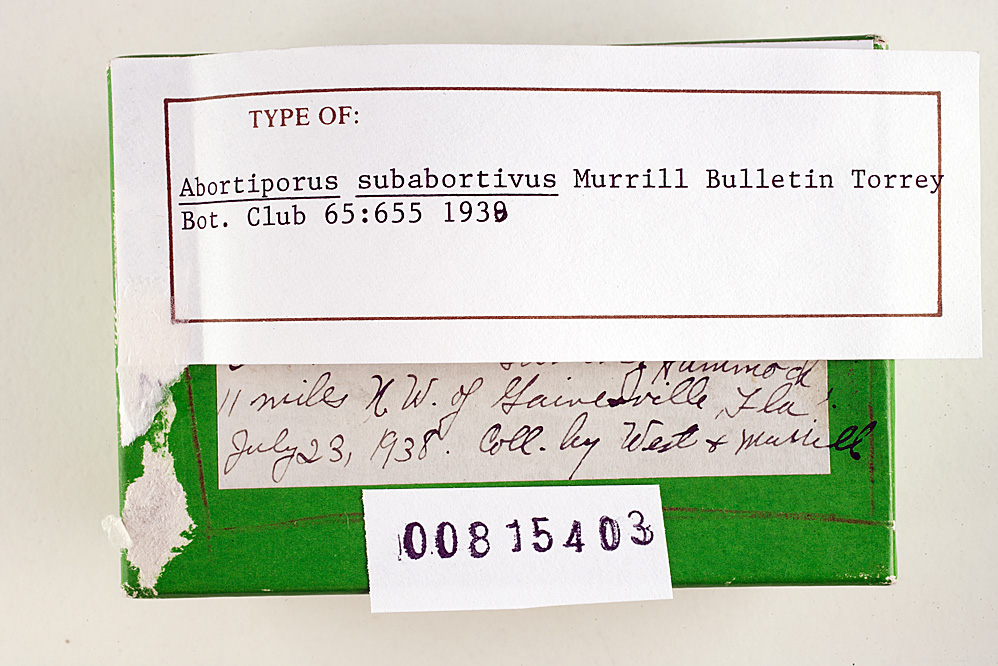 TYPE OF:
Abortiporus subabortivus Murrill Bulletin Torrey
Bot. Club 65:655 1939
Hammock
11 miles N.W. of Gainesville, Fla.
July 23, 1938. Coll. by West & Murrill
00815403